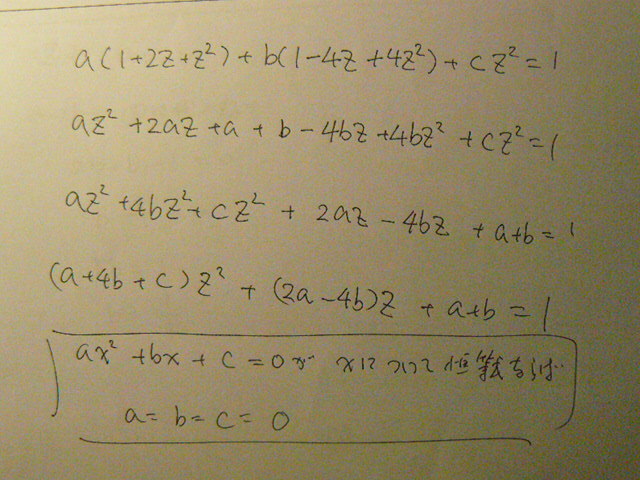 a(1+2z+z²)+b(1-4z+4z²)+cz²=1
az²+2az+a+b-4bz+4bz²+cz²=1
az²+4bz²+cz²+2az-4bz+a+b=1
(a+4b+c)z²+(2a-4b)z+a+b=1
ax²+bx+c=0が xについて恒等式ならば
a=b=c=0